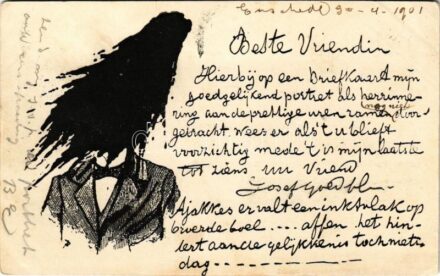 Enschede 30-4-1901
Beste Vriendin
Hierbij op een Briefkaart mijn
goedgelijkend portret als herrinne-
ring aan de prettige uren zamen door-
nog niet
gebracht. wees er als't u blieft
voorzichtig mede 't is mijn laatste
tot ziens uw Vriend
Josef
Ajakkes er valt een inktvlak op
overde boel .... affen het hin-
dert aan de gelijkkenis toch niets
dag